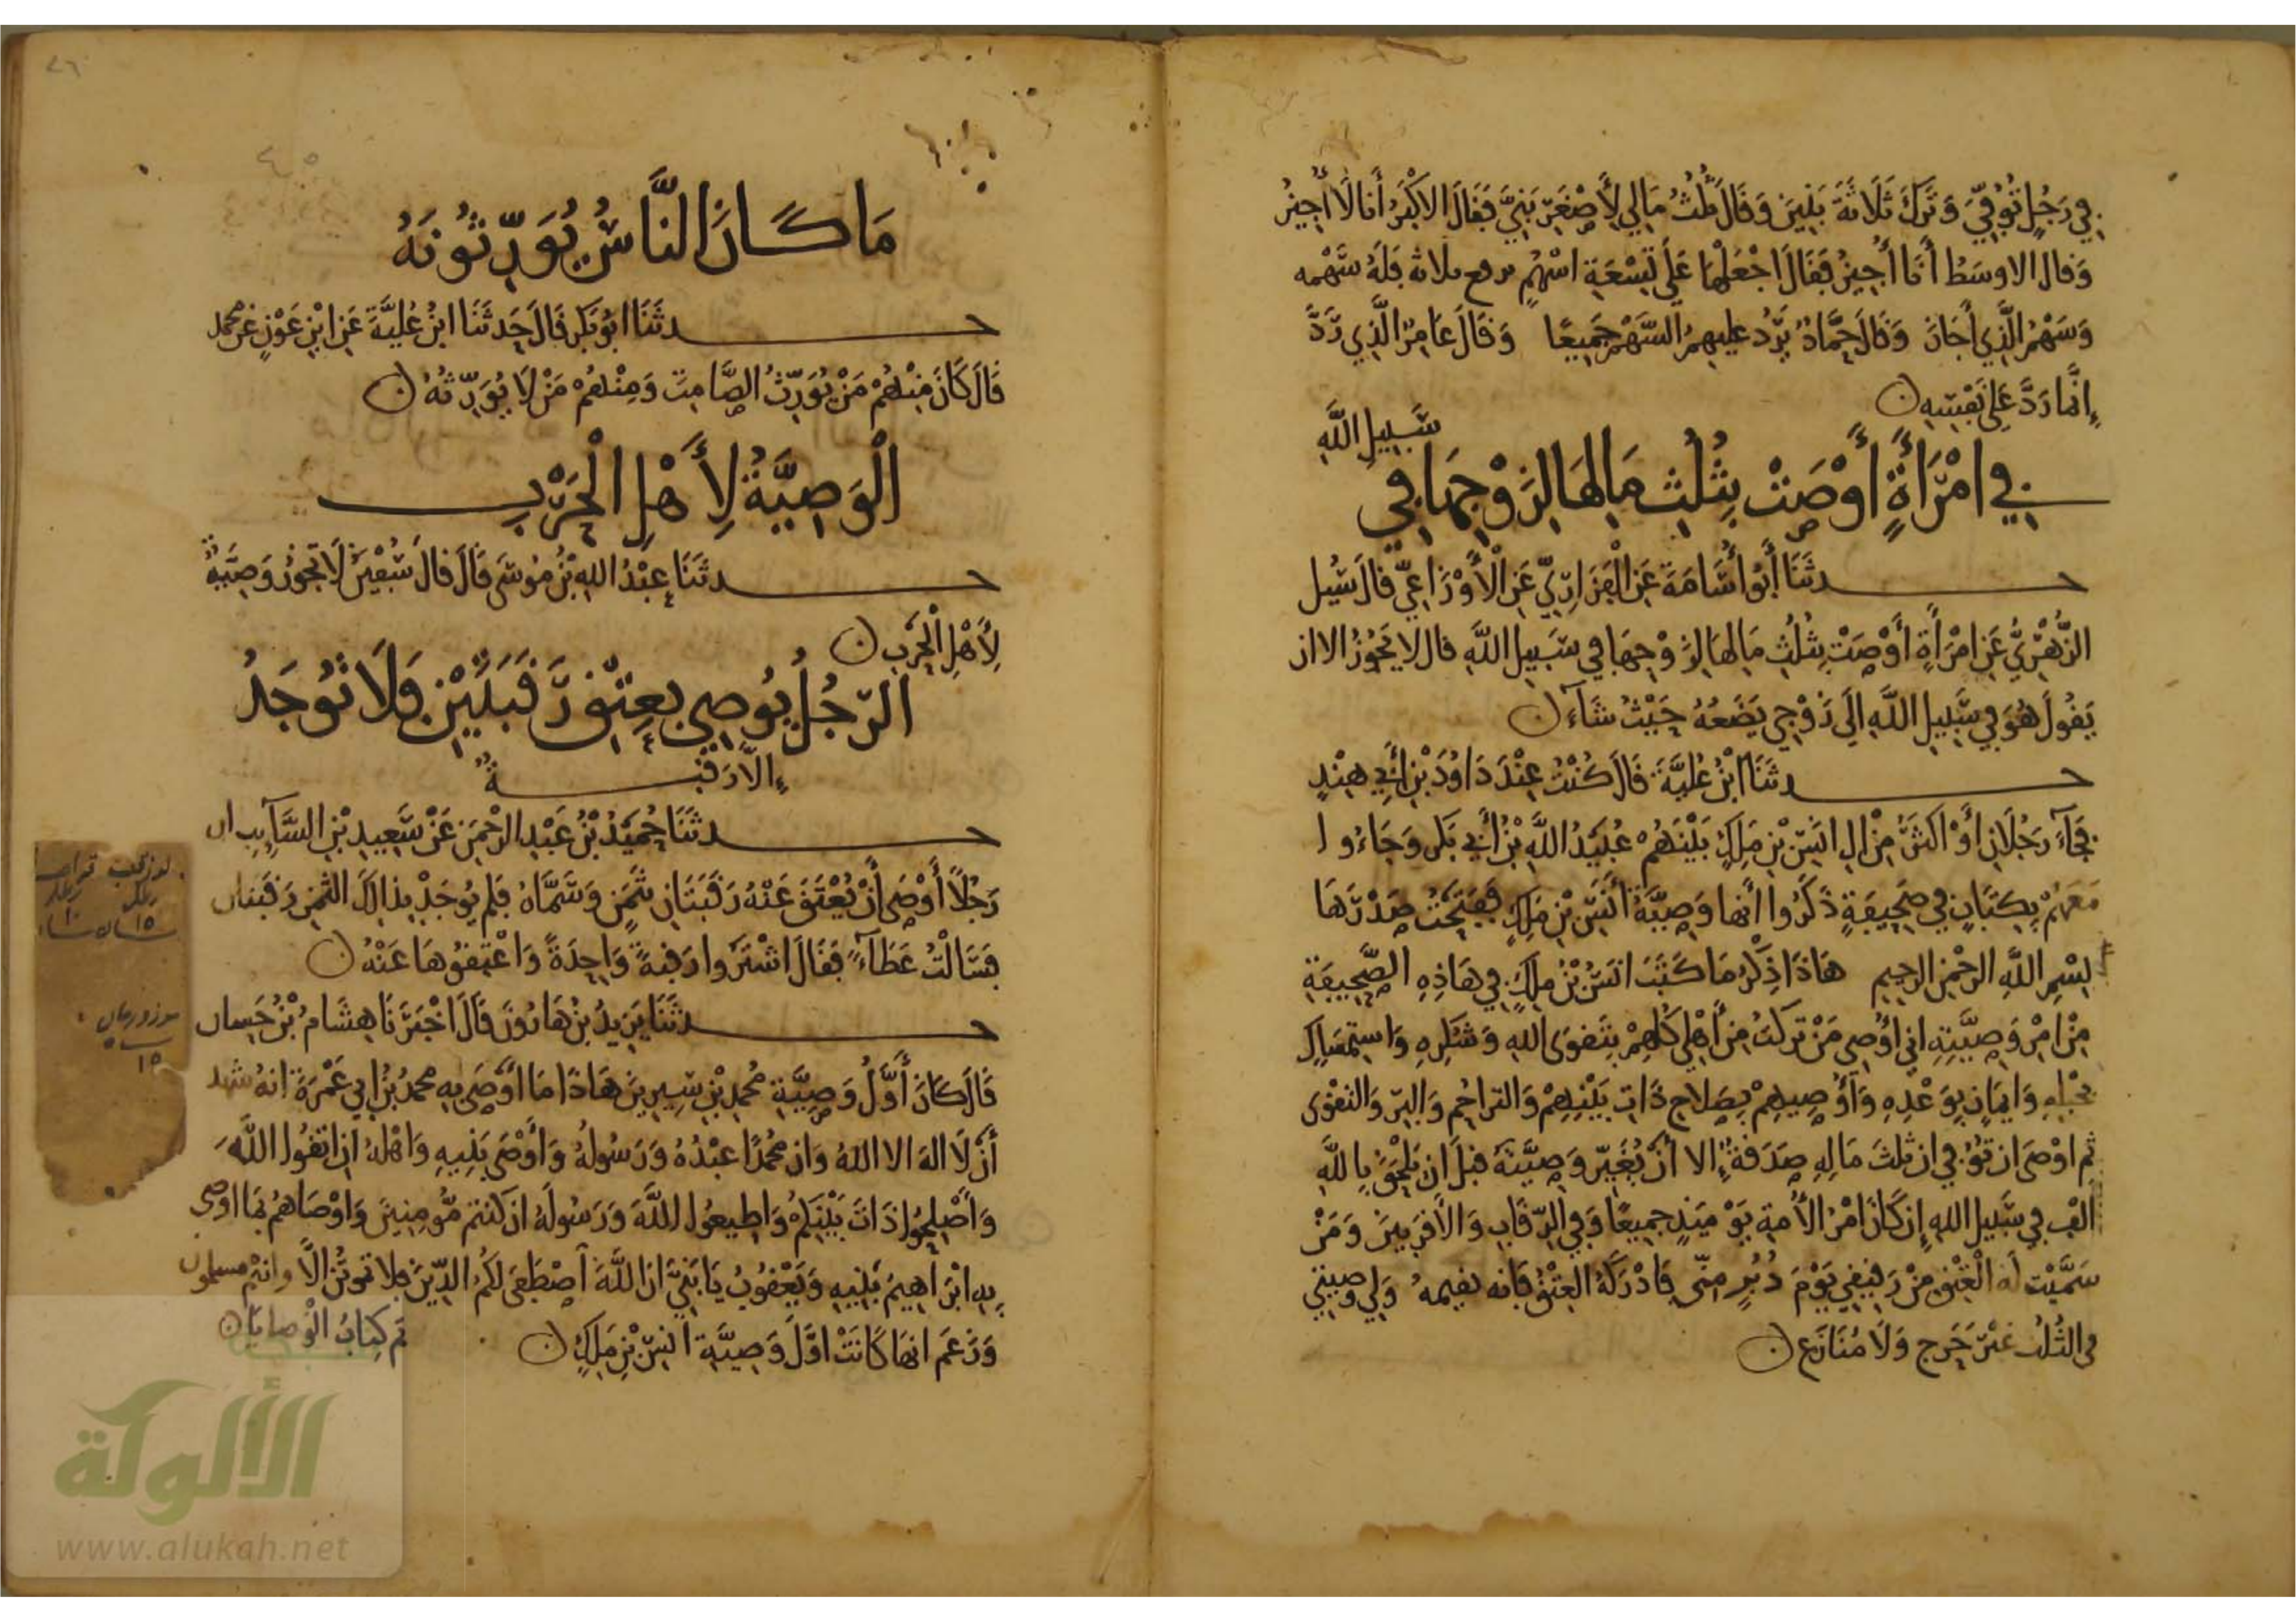 في رَجُلٍ تُوُفِّيَ وَتَرَكَ ثَلَاثَةَ بَنِينَ وَقَالَ ثُلُثُ مَالِي لِأَصْغَرِ بَنِيَّ فَقَالَ الاكْبَرُ أَنَا لَا أُجِيزُ
وَقَالَ الاوسَطُ أَنَا أُجِيزُ فَقَالَ اجْعَلْهَا عَلَى تِسْعَةِ اسْهُمٍ يرفع ثلاثة فَلَهُ سَهْمه
وَسَهْمُ الَّذِي أَجَازَ وَقَالَ حَمَّادٌ يَرُدُّ عليهِمُ السَّهْمَ جَمِيعًا وَقَالَ عَامِرٌ الَّذِي رَدَّ
إِنَّمَا رَدَّ عَلَى نَفْسِهِ
في امْرَأَةٍ أَوْصَتْ بِثُلُثِ مَالِهَا لِزَوْجِهَا فِي
سَبِيلِ اللَّهِ
حدثَنَا أَبُو أُسَامَةَ عَنِ الْفَزَارِيِّ عَنِ الْأَوْزَاعِيِّ قَالَ سُئِلَ
الزُّهْرِيُّ عَنِ امْرَأَةٍ أَوْصَتْ بِثُلُثِ مَالِهَا لِزَوْجِهَا فِي سَبِيلِ اللَّهِ قال لا يَجُوزُ الا ان
يَقُولَ هُوَ فِي سَبِيلِ اللَّهِ الَى زَوْجِي يَضَعُهُ حَيْثُ شَاءَ
حدثَنَا ابْنُ عُلَيَّةَ قَالَ كُنْتُ عِنْدَ دَاوُدَ بْنِ أَبِي هِنْدٍ
فَجَاءَ رَجُلَانِ أَوْ اكْثَرُ مِنْ الِ انَسِ بْنِ مَلِكٍ بَيْنَهُمْ عُبَيْدُ اللَّهِ بْنُ أَبِي بَكْرٍ وَجَاءُوا
مَعَهُمْ بِكِتَابٍ فِي صَحِيفَةٍ ذَكَرُوا أَنَّهَا وَصِيَّةُ أَنَسِ بْنِ مَلِكٍ فَفَتَحْتُ صَدْرَهَا
بِسْمِ اللَّهِ الرحْمنِ الرحِيمِ هَاذَا ذِكْرُ مَا كَتَبَ انَسُ بْنُ مَلِكٍ فِي هَاذِهِ الصَّحِيفَةِ
مِنْ امْرِ وَصِيَّتِهِ اني اُوصِي مَنْ تَرَكْتُ مِنْ أَهْلِي كُلِّهِمْ بِتَقْوَى اللهِ وَشُكْرِهِ وَاسْتِمْسَاكٍ
بحَبْلِهِ وَايمَانٍ بِوَعْدِهِ وَأُوصِيهِمْ بِصَلَاحِ ذَاتِ بَيْنِهِمْ وَالتراحُمِ وَالبِرِّ وَالتقْوَى
ثم اوْصَى ان تُوُفِّي ان ثلثَ مَالِهِ صَدَقَةٌ إِلا أَنْ يُغَيِّرَ وَصِيَّتَهُ قبْلَ ان يَلْحَقَ بِاللَّهِ
الفٌ فِي سَبِيلِ اللهِ إِن كَانَ امْرُ الأُمةِ يَوْمَئِذٍ جمِيعًا وَفِي الرِّقَابِ وَالأقرَبِينَ وَمَنْ
سَمَّيْت لَه الْعِتْقَ مِنْ رَقِيقِي يَوْمَ دُبُرٍ مِنِّي فَادْرَكَهُ الْعِتْقُ فَانه يقيمهُ وَلي وصيتي
في الثُّلُثِ غَيْرَ حَرِجٍ وَلَا مُنَازَعٍ
٢٦
مَا كَانَ النَّاسُ يُوَرِّثُونَهُ
حدثَنَا ابُو بَكْرٍ قَالَ حَدثَنَا ابْنُ عُلَيَّةَ عَنِ ابْنِ عَوْنٍ عَنْ محمد
قَالَ كَانَ مِنْهُمْ مَنْ يُوَرِّثُ الصَّامِتَ وَمِنْهُمْ مَنْ لَا يُوَرِّثُهُ
الْوَصِيَّةُ لِأَهْلِ الْحَرْبِ
حدثَنَا عبَيْدُ اللهِ بْنُ مُوسَى قَالَ قالَ سُفْيَنُ لَا تَجُوزُ وَصِيَّةٌ
لِأَهْلِ الْحَرْبِ
الرّجُلُ يُوصِي بِعِتْقِ رَقَبَتَيْنِ فَلَا تُوجَدُ
إِلَّا رَقَبَةٌ
حدثَنَا حُمَيْدُ بْنُ عَبْدِ الرحْمنِ عَنْ سَعِيدِ بْنِ السَّائِبِ ان
رَجُلًا أَوْصَى أَنْ يُعْتَقَ عَنْهُ رَقَبَتَانِ بِثَمَنٍ وَسَمَّاهُ فلم يُوجَدْ بذَالِكَ الثمنِ رَقَبَتان
فَسَالْتُ عَطَاءً فَقَالَ اشْتَرُوا رَقبَةً وَاحِدَةً وَاعْتِقُوهَا عَنْهُ
حدثَنَا يَزِيدُ بْنُ هَارُونَ قَالَ اخْبَرَنَا هِشَامُ بْنُ حَسان
قَالَ كَانَ أَوَّلُ وَصِيَّةِ مُحمدِ بْنِ سِيرِينَ هَاذَا مَا أَوْصَى بِهِ محمدُ بْنُ ابي عَمْرَةَ انهُ شهد
أَنْ لَا اله الا اللهُ وَان مُحمدًا عَبْدُهُ وَرَسُولُهُ وَأَوْصَى بَنِيهِ وَاهْلهُ ان اتقُوا اللَّهَ
وَأَصْلِحُوا ذَاتَ بَيْنِكُمْ وَاطِيعُوا اللَّهَ وَرَسُولَهُ ان كنتُمْ مُّومِنِينَ وَاوْصَاهُمْ بما اوصى
بهِ ابْرَاهِيمُ بَنِيهِ وَيَعْقُوبُ يَا بَنِيَّ ان اللَّهَ اصْطَفَى لَكُمُ الدِّينَ فلا تموتُنَّ الَّا وانتُمْ مسلمون
وَزَعَمَ انهَا كَانَتْ اوَّلَ وَصِيَّةِ انَسِ بْنِ مَلِكٍ
تم كِتَابُ الْوصايَا
الألوكة
www.alukah.net